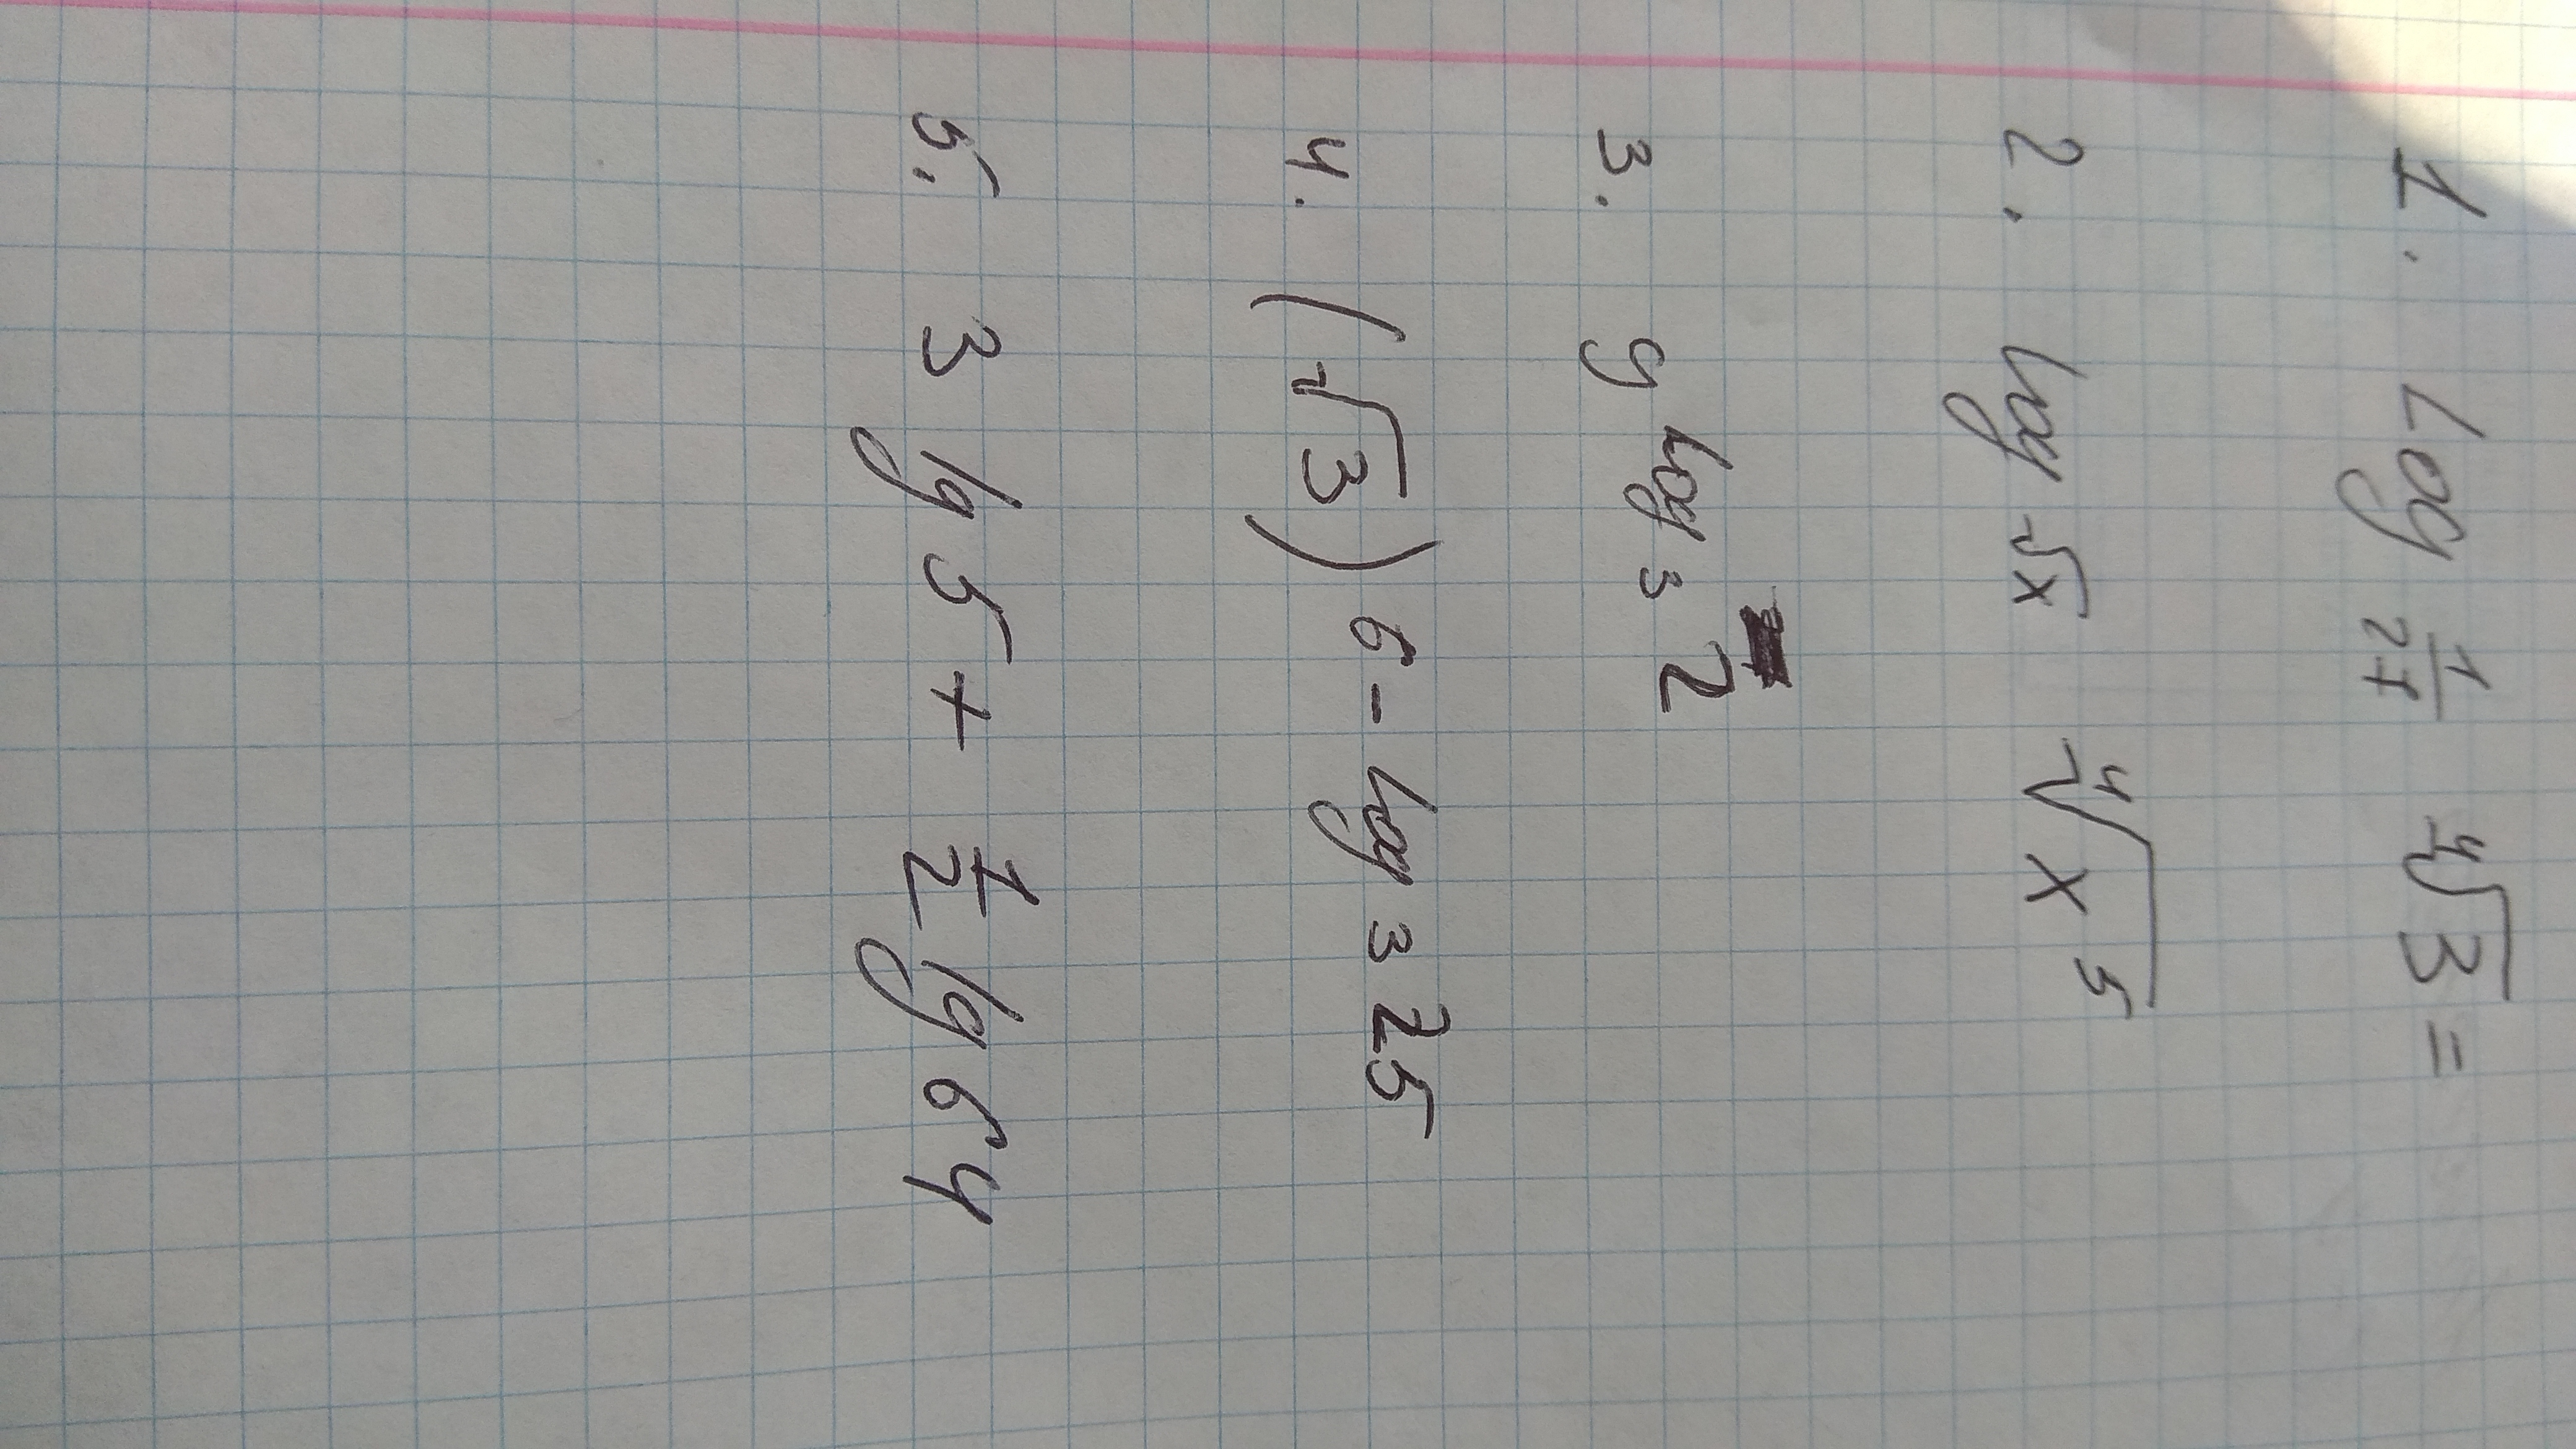 1. Log 1/27 ⁴√3 =
2. log √x ⁴√x⁵
3. 9 log 3 2
4. (√3) 6 - log 3 25
5. 3 lg 5 + 1/2 lg 64